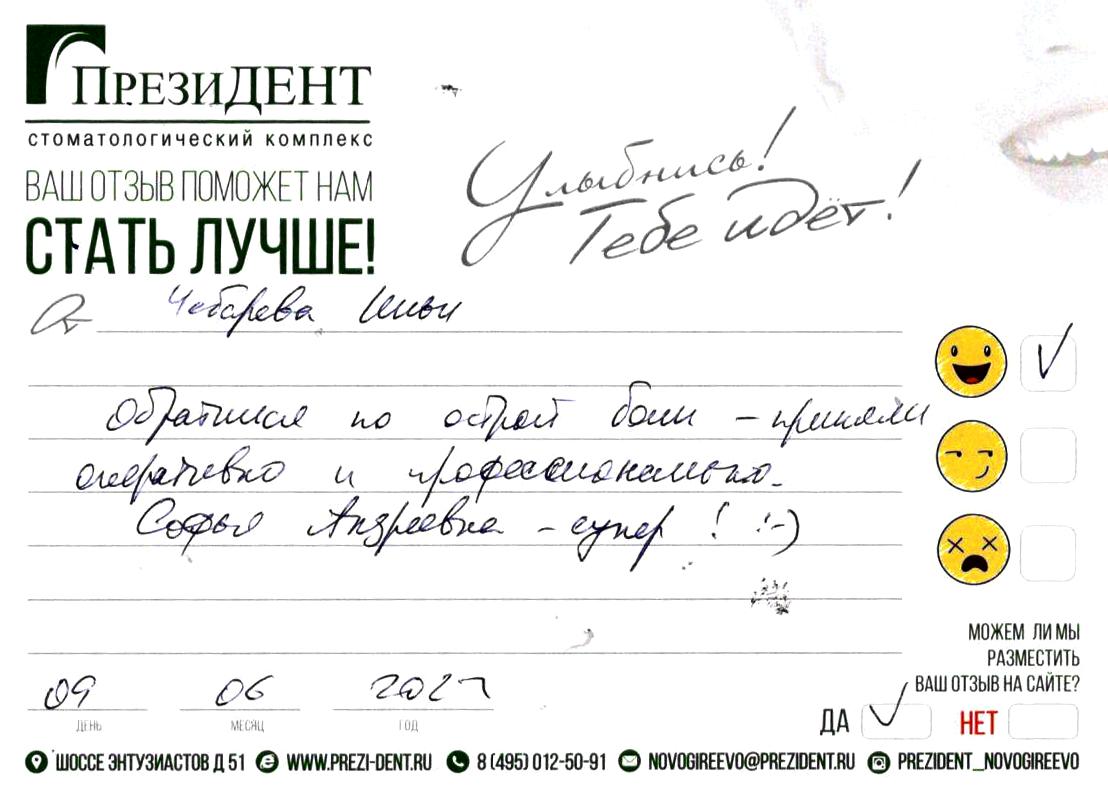 ПрезиДЕНТ
стоматологический комплекс
ВАШ ОТЗЫВ ПОМОЖЕТ НАМ
СТАТЬ ЛУЧШЕ!
Улыбнись!
Тебе идёт!
От Чебарева Ильи
Обратился по острой боли – приняли
оперативно и профессионально.
Софья Андреевна – супер! :-)
09 06 202
ДЕНЬ МЕСЯЦ ГОД
МОЖЕМ ЛИ МЫ
РАЗМЕСТИТЬ
ВАШ ОТЗЫВ НА САЙТЕ?
ДА НЕТ
ШОССЕ ЭНТУЗИАСТОВ Д 51 WWW.PREZI-DENT.RU 8 (495) 012-50-91 NOVOGIREEVO@PREZIDENT.RU PREZIDENT_NOVOGIREEVO